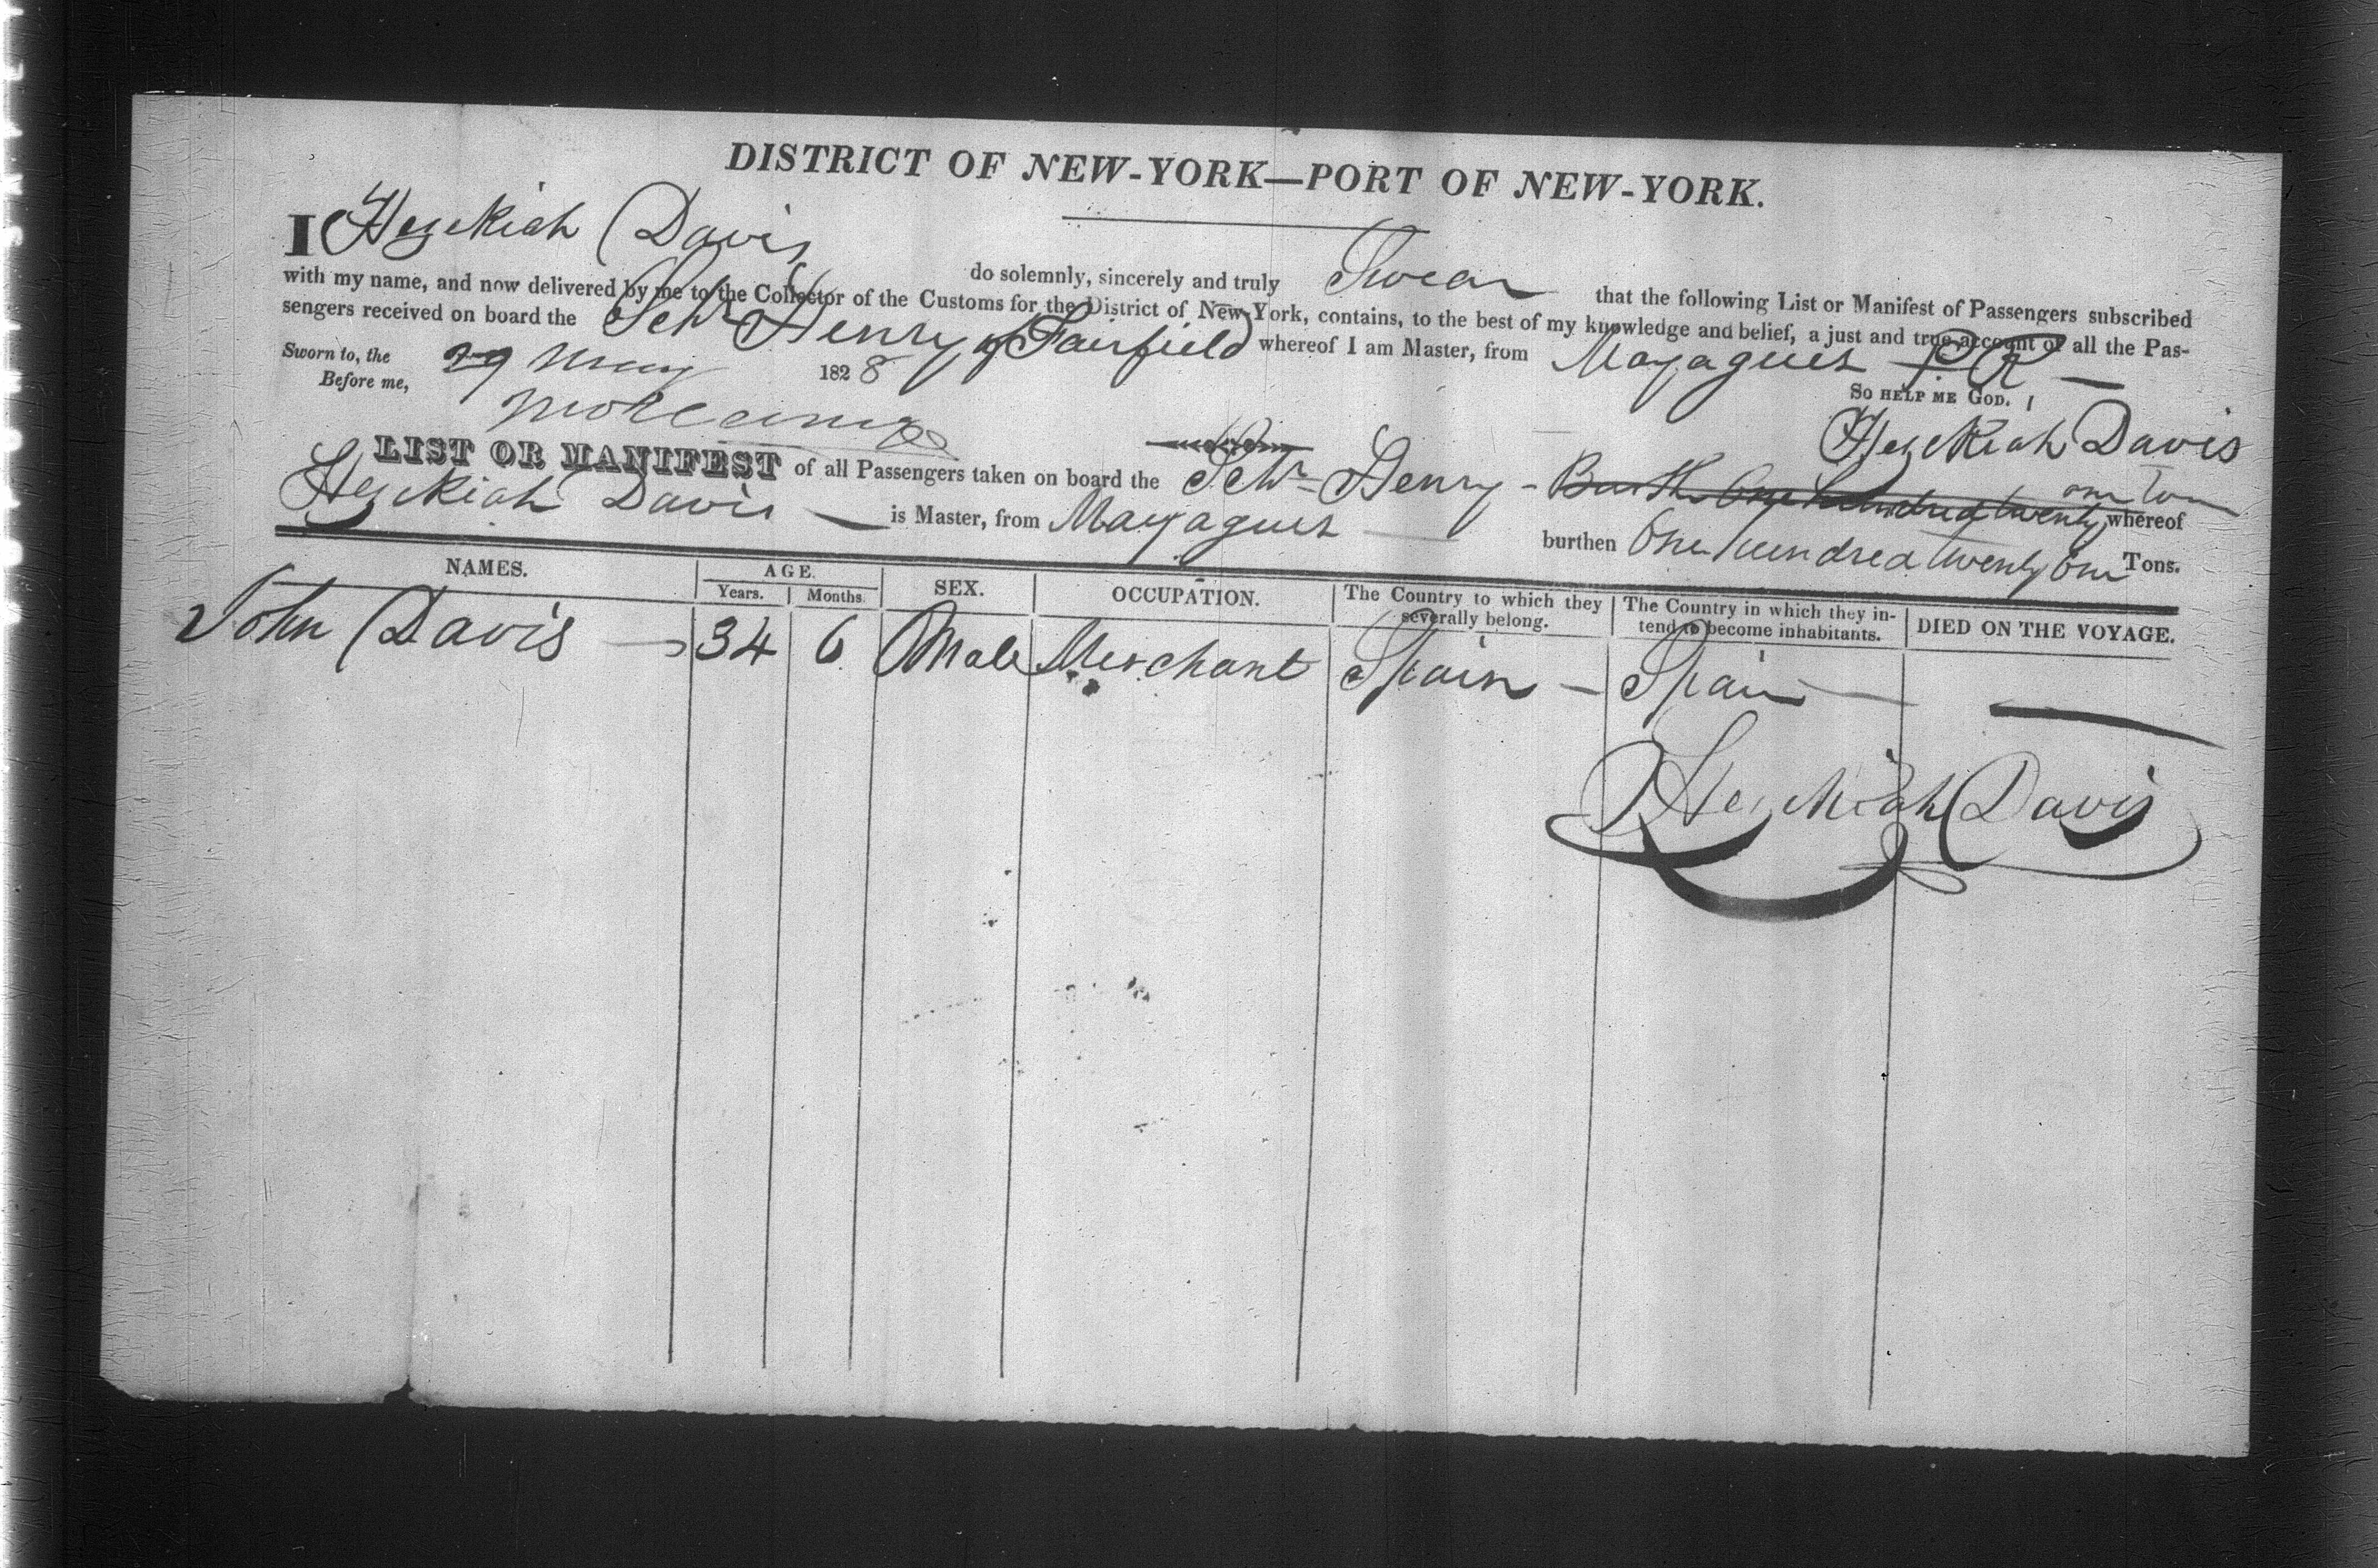 DISTRICT OF NEW-YORK—PORT OF NEW-YORK.
I Hezekiah Davis do solemnly, sincerely and truly Swear that the following List or Manifest of Passengers subscribed
with my name, and now delivered by me to the Collector of the Customs for the District of New-York, contains, to the best of my knowledge and belief, a just and true account of all the Pas-
sengers received on board the Schr Henry of Fairfield whereof I am Master, from Mayaguez P.R
Sworn to, the 29 May 1828 So HELP ME GOD.
Before me,
Hezekiah Davis
LIST OR MANIFEST of all Passengers taken on board the Schr Henry - Burthen One hundred twenty one ton whereof
Hezekiah Davis is Master, from Mayaguez burthen One hundred twenty one Tons.
NAMES. AGE. Years. Months. SEX. OCCUPATION. The Country to which they severally belong. The Country in which they in-tend to become inhabitants. DIED ON THE VOYAGE.
John Davis 34 6 Male Merchant Spain — Spain —
Hezekiah Davis